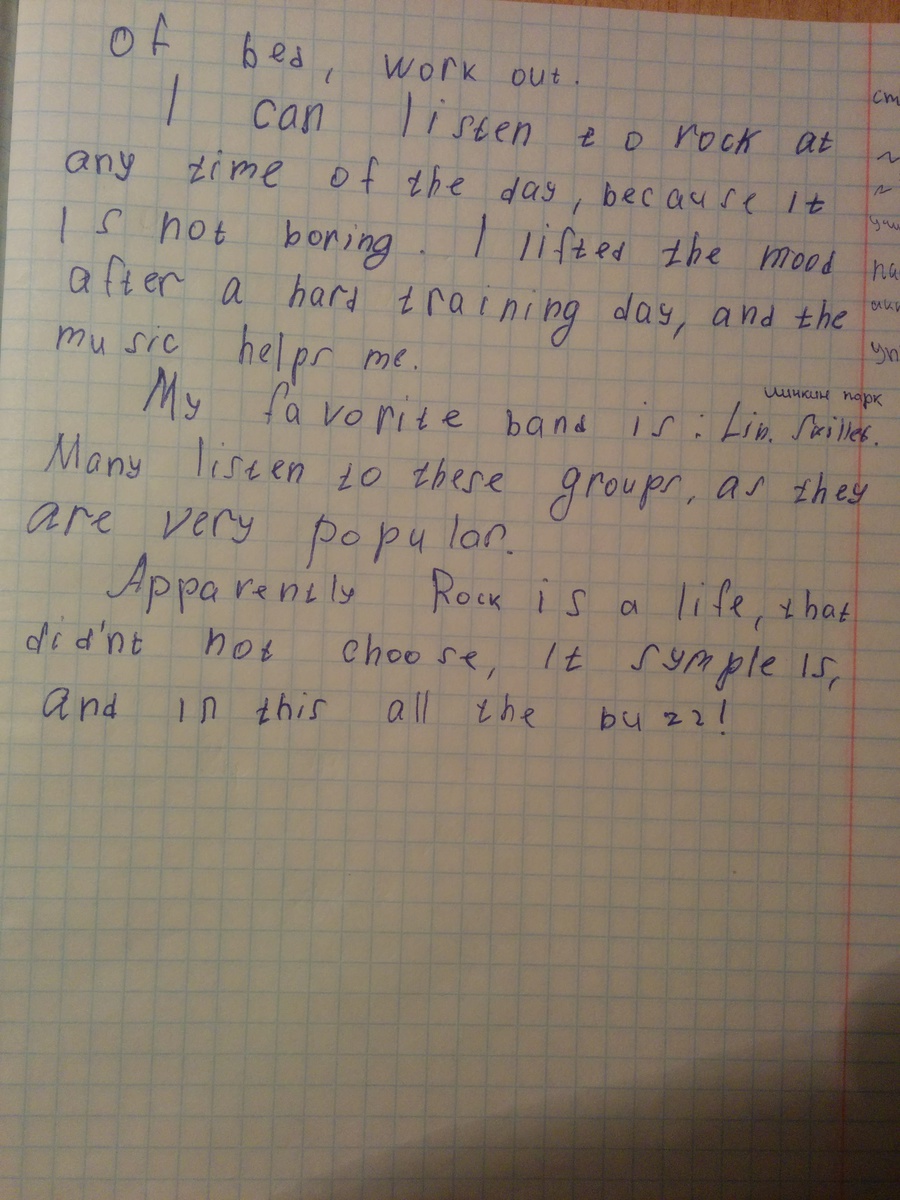 of bed, work out.
I can listen to rock at
any time of the day, because it
is not boring. I lifted the mood
after a hard training day, and the
music helps me.
линкин парк
My favorite band is: Lin. Skillet.
Many listen to these groups, as they
are very popular.
Apparently Rock is a life, that
did'nt not choose, it symple is,
and in this all the buzz!
ст
па
уп